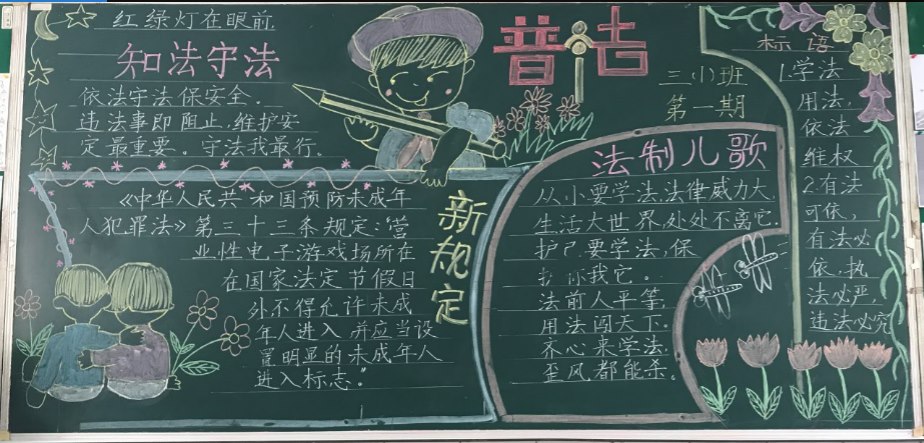 红绿灯在眼前
知法守法
依法守法保安全。
违法事即阻止,维护安
定最重要。守法我最行。
普法
三(1)班
第一期
《中华人民共和国预防未成年
人犯罪法》第三十三条规定:"营
业性电子游戏场所在
在国家法定节假日
外不得允许未成
年人进入,并应当设
置明显的未成年人
进入标志。"
新规定
法制儿歌
从小要学法,法律威力大,
生活大世界,处处不离它.
护己要学法,保
你我它。
法前人平等,
用法闯天下.
齐心来学法,
歪风都能杀。
标语
1.学法
用法,
依法
维权
2.有法
可依,
有法必
依.执
法必严,
违法必究